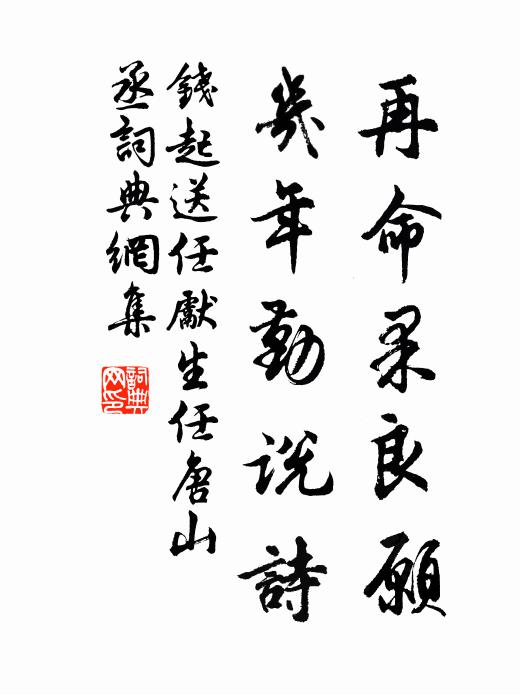 再命果良願
幾年勤說詩
錢起送任獻生任唐山
丞詞典網集
詞典网印